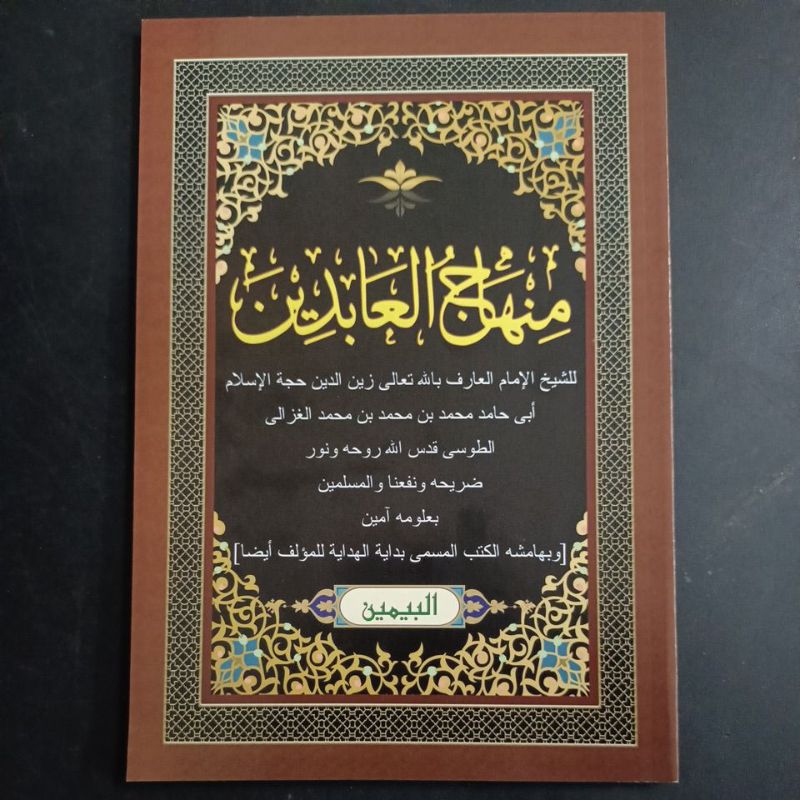 مِنْهَاجُ الْعَابِدِيْنَ
للشيخ الإمام العارف بالله تعالى زين الدين حجة الإسلام
أبى حامد محمد بن محمد بن محمد الغزالى
الطوسى قدس الله روحه ونور
ضريحه ونفعنا والمسلمين
بعلومه آمين
[وبهامشه الكتب المسمى بداية الهداية للمؤلف أيضا]
البيمين